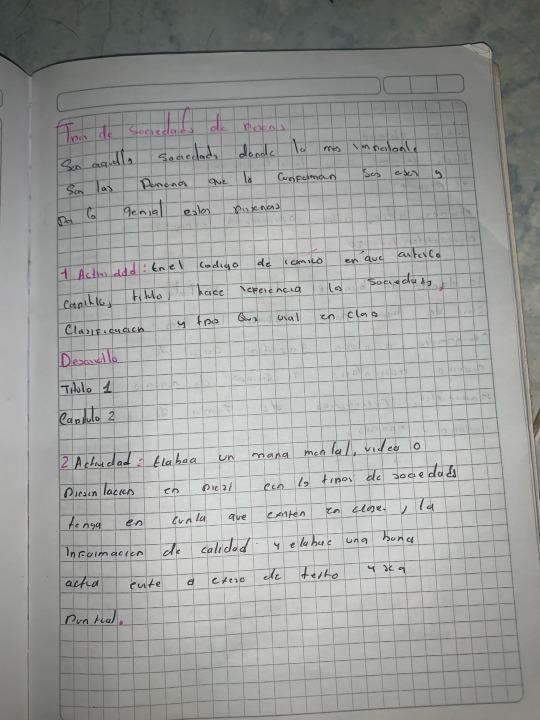 Tipos de Sociedads de Personas
Son aquella Sociedads donde lo mas importante
Son las Personas que la Conforman Sus exen y
Por lo genial estas personas
1 Actividdd: En el codigo de comico en que articlo
Capitlo, titulo, hace referencia la Sociedads,
Clasificación y tipo en clas
Desarollo
Titulo 1
Capitulo 2
2 Actividad: Elabaa un mapa mental, video o
Presentacion en Prezi con lo tipos de sociedads
tenga en cunta que existen en clase, la
Informacion de calidad y elabae una buna
evite el exeso de texto y sea
Puntual.